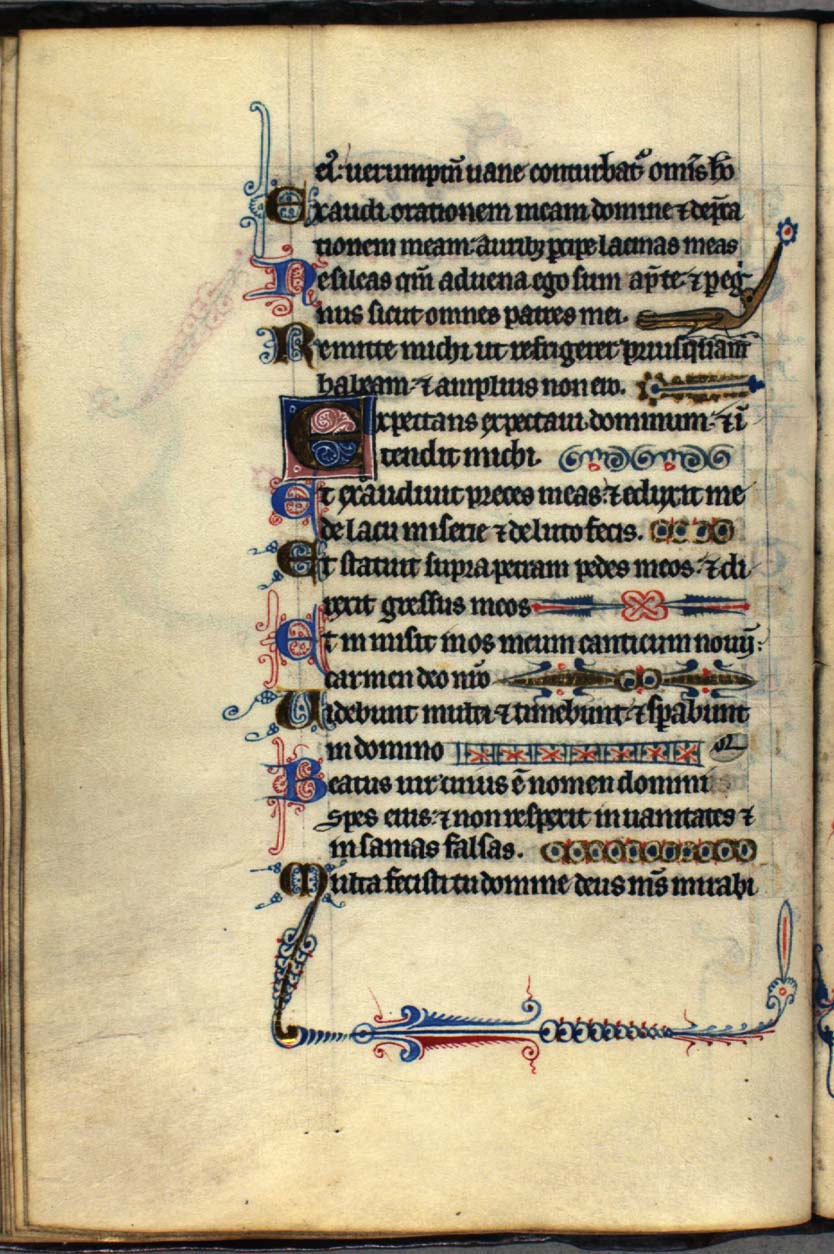 eiꝰ: uerumptn̄ uane conturbat᷑ omīs hō
Exaudi orationem meam domine ⁊ dep̄ca
tionem meam: aurib; ꝑcipe lacrimas meas
Ne sileas qm̄ aduena ego sum ap̄ te: ⁊ ꝑegͥ
nus sicut omnes patres mei.
Remitte michi ut refrigerer priusquam
habeam: ⁊ amplius non ero.
Expectans expectaui dominum: ⁊ ī
tendit michi.
Et exaudiuit preces meas: ⁊ eduxit me
de lacu miserie ⁊ de luto fecis.
Et statuit supra petram pedes meos: ⁊ di
rexit gressus meos
Et in misit in os meum canticum nouū:
carmen deo nr̄o
Uidebunt multi ⁊ timebunt: ⁊ sꝑabunt
in domino
Beatus uir cuius ē nomen domini
spes eius: ⁊ non respexit in uanitates ⁊
in sanias falsas.
Multa fecisti tu domine deus ms̄ mirabi